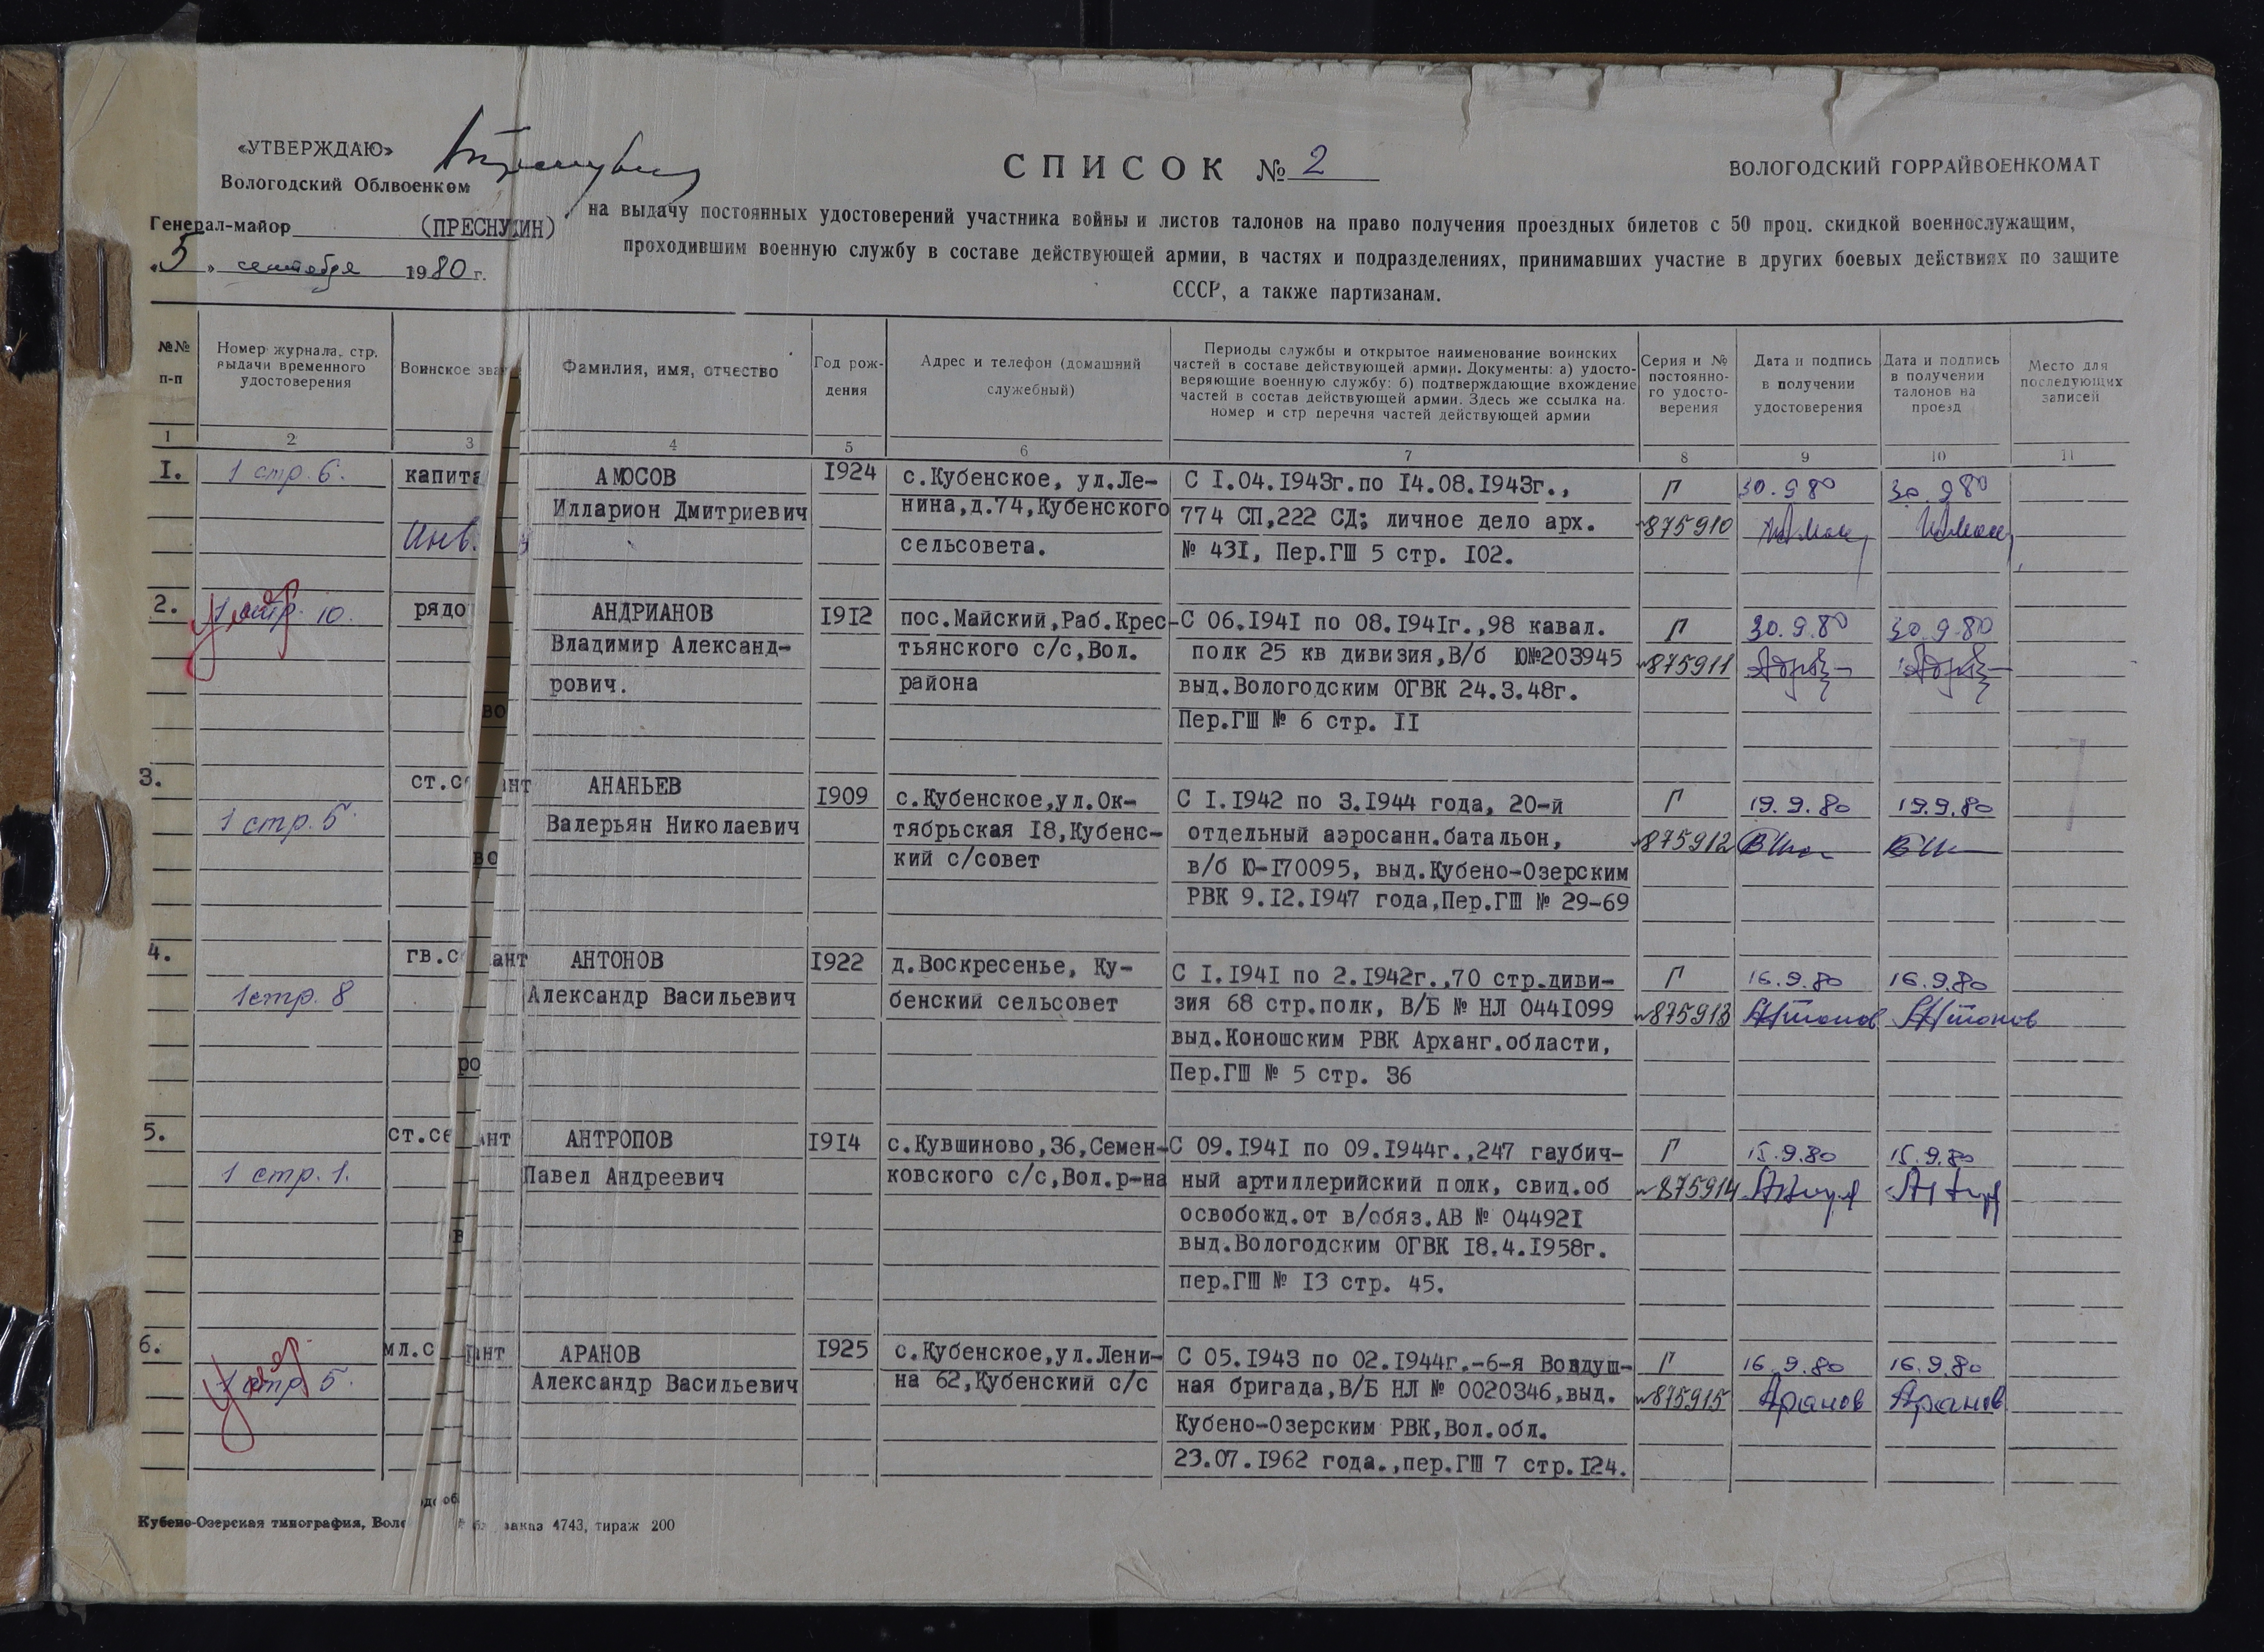 «УТВЕРЖДАЮ»
Вологодский Облвоенком
Генерал-майор (ПРЕСНУХИН)
«5» сентября 1980 г.
СПИСОК № 2
ВОЛОГОДСКИЙ ГОРРАЙВОЕНКОМАТ
на выдачу постоянных удостоверений участника войны и листов талонов на право получения проездных билетов с 50 проц. скидкой военнослужащим,
проходившим военную службу в составе действующей армии, в частях и подразделениях, принимавших участие в других боевых действиях по защите
СССР, а также партизанам.
№№ п-п
Номер журнала, стр. выдачи временного удостоверения
Воинское зва
Фамилия, имя, отчество
Год рож-
дения
Адрес и телефон (домашний
служебный)
Периоды службы и открытое наименование воинских
частей в составе действующей армии. Документы: а) удосто-
веряющие военную службу: б) подтверждающие вхождение
частей в состав действующей армии. Здесь же ссылка на
номер и стр перечня частей действующей армии
Серия и №
постоянно-
го удосто-
верения
Дата и подпись
в получении
удостоверения
Дата и подпись
в получении
талонов на
проезд
Место для
последующих
записей
1 2 3 4 5 6 7 8 9 10 11
1. 1 стр. 6. капита АМОСОВ 1924 с.Кубенское, ул.Ле- С 1.04.1943г.по 14.08.1943г., Г 30.9.80 30.9.80
Илларион Дмитриевич нина,д.74,Кубенского 774 СП,222 СД; личное дело арх. №875910
Инв. сельсовета. № 431, Пер.ГШ 5 стр. 102.
2. 1 стр. 10. рядо АНДРИАНОВ 1912 пос.Майский,Раб.Крес- С 06.1941 по 08.1941г.,98 кавал. Г 30.9.80 30.9.80
умер
Владимир Александ- тьянского с/с,Вол. полк 25 кв дивизия,В/б Ю№203945 №875911
рович. района выд.Вологодским ОГВК 24.3.48г.
во
Пер.ГШ № 6 стр. 11
3. ст.се ант АНАНЬЕВ 1909 с.Кубенское,ул.Ок- С 1.1942 по 3.1944 года, 20-й Г 19.9.80 19.9.80
1 стр. 5. Валерьян Николаевич тябрьская 18,Кубенс- отдельный аэросанн.батальон, №875912
во кий с/совет в/б Ю-170095, выд.Кубено-Озерским
РВК 9.12.1947 года,Пер.ГШ № 29-69
4. гв.с ант АНТОНОВ 1922 д.Воскресенье, Ку- С 1.1941 по 2.1942г.,70 стр.диви- Г 16.9.80 16.9.80
1 стр. 8 Александр Васильевич бенский сельсовет зия 68 стр.полк, В/Б № НЛ 0441099 №875913 Антонов Антонов
выд.Коношским РВК Арханг.области,
ро Пер.ГШ № 5 стр. 36
5. ст.се ант АНТРОПОВ 1914 с.Кувшиново,36,Семен- С 09.1941 по 09.1944г.,247 гаубич- Г 15.9.80 15.9.80
1 стр. 1. Павел Андреевич ковского с/с,Вол.р-на ный артиллерийский полк, свид.об №875914
освобожд.от в/обяз.АВ № 044921
в выд.Вологодским ОГВК 18.4.1958г.
пер.ГШ № 13 стр. 45.
6. мл.с ант АРАНОВ 1925 с.Кубенское,ул.Лени- С 05.1943 по 02.1944г.-6-я Воздуш- Г 16.9.80 16.9.80
умер
1 стр 5. Александр Васильевич на 62,Кубенский с/с ная бригада,В/Б НЛ № 0020346,выд. №875915 Аранов Аранов
Кубено-Озерским РВК,Вол.обл.
23.07.1962 года.,пер.ГШ 7 стр.124.
Кубено-Озерская типография, Воло заказ 4743, тираж 200